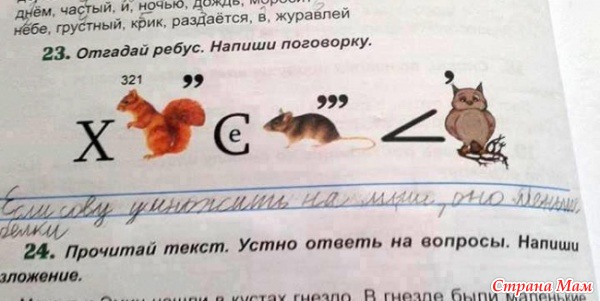 днём, частый, и, ночью, дождь, моросит
небе, грустный, крик, раздаётся, в, журавлей
23. Отгадай ребус. Напиши поговорку.
321 ,, ,,, ,
Х С е <
Если сову умножить на мыши, оно меньше
белки
24. Прочитай текст. Устно ответь на вопросы. Напиши
зложение.
нашли в кустах гнездо. В гнезде были маленькие
Страна Мам